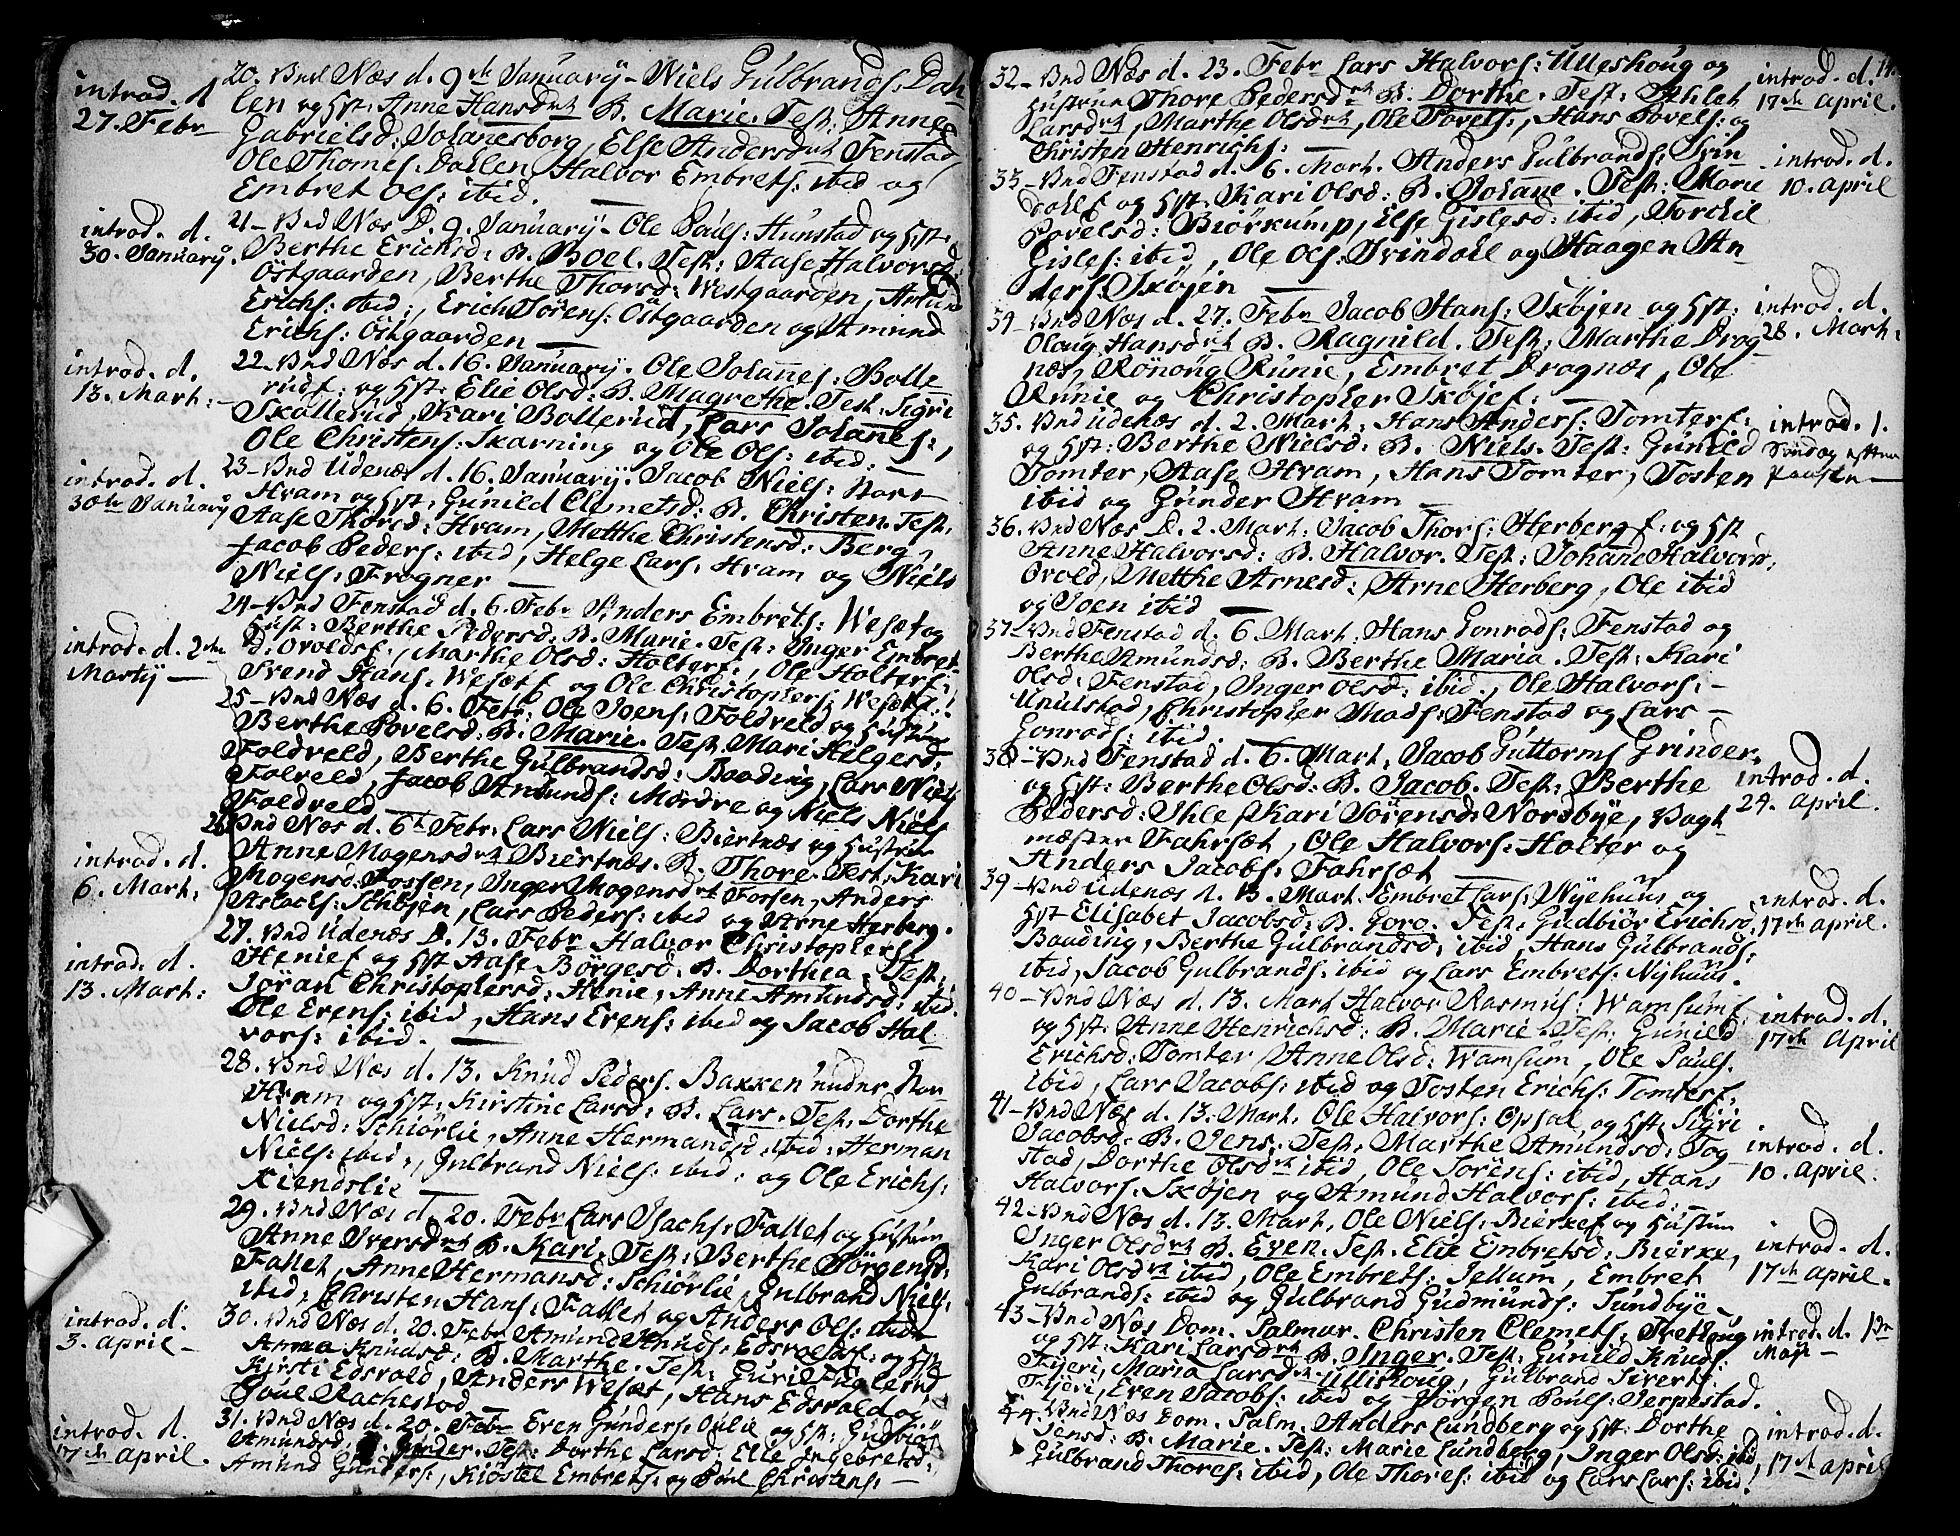 introd. d.
27. Febr
20. Vnd Næs d. 9de January – Niels Gulbrands: Dah
len og Hst: Anne Hansdtr B. Marie. Test: Anne
Gabrielsd: Johanesborg, Else Andersdtr Fenstad,
Ole Thomes: Dallen, Halvor Embrets: ibid og
Embret Ols: ibid. —
introd. d.
30. January.
21 – Vnd Næs D. 9. January – Ole Pouls: Hunstad og Hst:
Berthe Erichsd: B. Boel. Test: Aase Halvorsd:
Östgaarden, Berthe Thorsd: Westgaarden, Amund
Erichs: ibid:, Erich Sörens: Östgaarden og Amund
Erichs: Östgaarden —
introd. d.
13. Mart: –
22 – Vnd Næs d. 16. January. Ole Johanes: Bolle
rudf: og Hst: Elie Olsd: B. Magrethe. Test: Sigri
Skullerud, Kari Bollerud, Lars Johanes:,
Ole Christens: Skarning og Ole Ols: ibid: —
introd. d.
30te January
23 – Vnd Udenæs d. 16. January. Jacob Niels: Nort
Hram og Hst: Gunild Clemetsd: B. Christen. Test:
Aase Thorsd: Hram, Metthe Christensd: Berg,
Jacob Peders: ibid, Helge Lars: Hram og Niels
Niels: Frogner —
introd. d. 2den
Martij —
24 – Vnd Fenstad d. 6. Febr Anders Embrets: Wesæt og
Hust: Berthe Pedersd: B. Marie. Test: Inger Embret
D: Ovoldsf:, Marthe Olsd: Holterf:, Ole Holters:,
Svend Hans: Wesætf og Ole Christophers: Wesætf:
25 – Vnd Næs d. 6. Febr: Ole Joens: Foldveld og Hustru
Berthe Povelsd: B. Marie. Test. Mari Helgesd:
Foldveld, Berthe Gulbrandsd: Baading, Lars Niels
Folveld, Jacob Amunds: Mordre og Niels Niels
Foldveld —
introd. d.
6. Mart:
26 Vnd Næs d. 6t Febr: Lars Niels: Biertnæs og Hustrue
Anne Mogensdtr Biertnæs. B. Thore. Test: Kari
Mogensd: Fossen, Inger Mogensdtr Fossen, Anders
Aslachs: Schöjen, Lars Peders: ibid og Arne Herberg.
introd. d.
13. Mart:
27. Vnd Udenæs D. 13. Febr Halvor Christophers:
Henief og Hst Aase Börgesd: B. Dorthea. Test:
Jöran Christophersd: Henie, Anne Amundsd: ibid.
Ole Erens: ibid, Hans Erens: ibid og Jacob Hal-
vors: ibid. —
28. Vnd Næs d. 13. Knud Peders. Bakken under Nor
Hram og Hst: Kirstine Larsd: B. Lars. Test: Dorthe
Nielsd: Schiörlie, Anne Hermandsd: ibid: Herman
Niels: ibid:, Gulbrand Niels: ibid: og Ole Erichs:
Kiendslie —
29. Vnd Næs d. 20. Febr Lars Isachs: Fallet og Hustru
Anne Iversdtr B. Kari. Test: Berthe Börgensd:
Fallet, Anne Hermansd: Schiörlie, Gulbrand Niels:
ibid, Christen Hans: Fallet og Anders Ols: ibid.
introd. d:
3. April –
30. Vnd Næs d. 20. Febr Amund Knuds: Edsvolsf: og Hst
Anna Knudsd: B. Marthe. Test. Guri Fuglerud
Kirsti Edsvold, Anders Wesæt, Hans Edsvold og
Poul Rachestad —
introd. d.
17de April.
31. Vnd Næs d. 20. Febr Even Gunders: Oulie og Hst: Gudbiör
Amundsd: B. Gunder. Test: Dorthe Larsd: Elle Ingebretsd:
Amund Gunders:, Kiöstel Embrets: og Poul Christens: —
14.
introd. d.
17de April.
32 – Vnd Næs d. 23. Febr Lars Halvors: Ulleshoug og
Hustrue Thore Pedersdtr B: Dorthe. Test: Sehlet
Larsdtr, Marthe Olsdtr, Ole Povels:, Hans Povels: og
Christen Henrichs: —
introd. d.
10. April
33 – Vnd Fenstad d. 6. Mart. Anders Gulbrands: Svin
dalf og Hst: Kari Olsd: B. Johane. Test: Marie
Povelsd: Biörkump, Else Gislesd: ibid, Torchil
Gisles: ibid, Ole Ols: Svindall og Haagen An
ders: Sköjen —
introd. d.
28. Mart:
34 – Vnd Næs d. 27. Febr Jacob Hans: Sköjen og Hst:
Oloug Hansdtr B. Ragnild. Test: Marthe Drog
næs, Rönöug Runie, Embret Drognæs, Ole
Runie og Christopher Sköjef: —
introd. 1.
Söndag efter
Paasken —
35. Vnd Udenæs d. 2. Mart: Hans Anders: Tomterf:
og Hst: Berthe Nielsd: B. Niels. Test: Gunild
Tomter, Aase Hram, Hans Tomter, Tosten
ibid og Gunder Hram —
36. Vnd Næs D. 2. Mart: Jacob Thors: Herberg f: og Hst
Anne Halvorsd: B. Halvor. Test: Johane Halvorsd,
Ovold, Metthe Arnesd: Arne Herberg, Ole ibid
og Joen ibid —
37 – Vnd Fenstad d. 6. Mart: Hans Conrads: Fenstad og
Berthe Amundsd: B. Berthe Maria. Test: Kari
Olsd: Fenstad, Inger Olsd: ibid., Ole Halvors: –
Unulstad, Christopher Mads: Fenstad og Lars –
Conrads: ibid.
introd. d.
24. April.
38 – Vnd Fenstad d. 6. Mart. Jacob Guttorms Grinder.
og Hst: Berthe Olsd: B. Jacob. Test: Berthe
Pedersd: Ihle, Kari Sörensd: Nordbÿe, Vagt
mæster Fahrsæt, Ole Halvors: Holter og
Anders Jacobs: Fahrsæt —
introd. d.
17de April.
39 – Vnd Udenæs d. 13. Mart. Embret Lars: Nÿehuus og
Hst Elisabet Jacobsd: B. Goro. Test: Gudbiör Erichsd,
Baading, Berthe Gulbrandsd: ibid, Hans Gulbrands:
ibid, Jacob Gulbrands: ibid og Lars Embrets: Nÿhuus.
introd. d.
17de April
40 – Vnd Næs d. 13. Mart Halvor Rasmus: Wamsumf:
og Hst: Anne Henrichsd: B. Marie. Test: Gunild
Erichsd: Tomter, Anne Olsd: Wamsum, Ole Pauls.
ibid, Lars Jacobs: ibid og Tosten Erichs: Tomterf.
introd. d.
10. April.
41 – Vnd Næs d. 13. Mart. Ole Halvors: Opsal, og Hst: Sigri
Jacobsd: B. Jens. Test: Marthe Amundsd: Fog
stad, Dorthe Olsdtr ibid, Ole Sorens: ibid, Hans
Halvors: Sköjen og Amund Halvors: ibid: —
introd. d.
17de April.
42 – Vnd Næs d. 13. Mart. Ole Niels: Bierkef og Hustru
Inger Olsdtr B. Even. Test. Elie Embretsd: Bierke,
Kari Olsdtr ibid, Ole Embrets: Jellum, Embret
Gulbrands: ibid og Gulbrand Gudmunds: Sundbÿe –
introd. d. 12te
Maji –
43 – Vnd Næs Dom. Palmar. Christen Clemets: Tretkoug
og Hst: Kari Larsdtr B. Inger. Test: Gunild Knuds:
Skjeri, Maria Larsdtr Ulleshoug, Gulbrand Siverts:
Skjeri, Even Jacobs: ibid og Jörgen Pouls: Serpestad.
introd. d.
17de April
44. Vnd Næs Dom. Palm. Anders Lundberg og Hst: Dorthe
Jensd: B. Marie. Test: Marie Lundberg, Inger Olsd: ibid,
Gulbrand Thores: ibid, Ole Thores: ibid og Lars Lars: ibid.